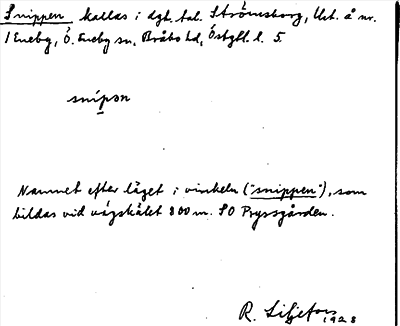 Snippen kallas i dgl. tal. Strömsborg, Urt. å nr.
1 Eneby, Ö. Eneby sn, Bråbo hd, Östgtl. l. 5.
snipən
Namnet efter läget i vinkeln ("snippen"), som
bildas vid vägskälet 800 m. SO Pryssgården.
R. Liljefors 1928